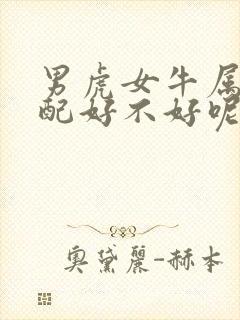 男虎女牛属
配好不好呢
奥黛麗-赫本